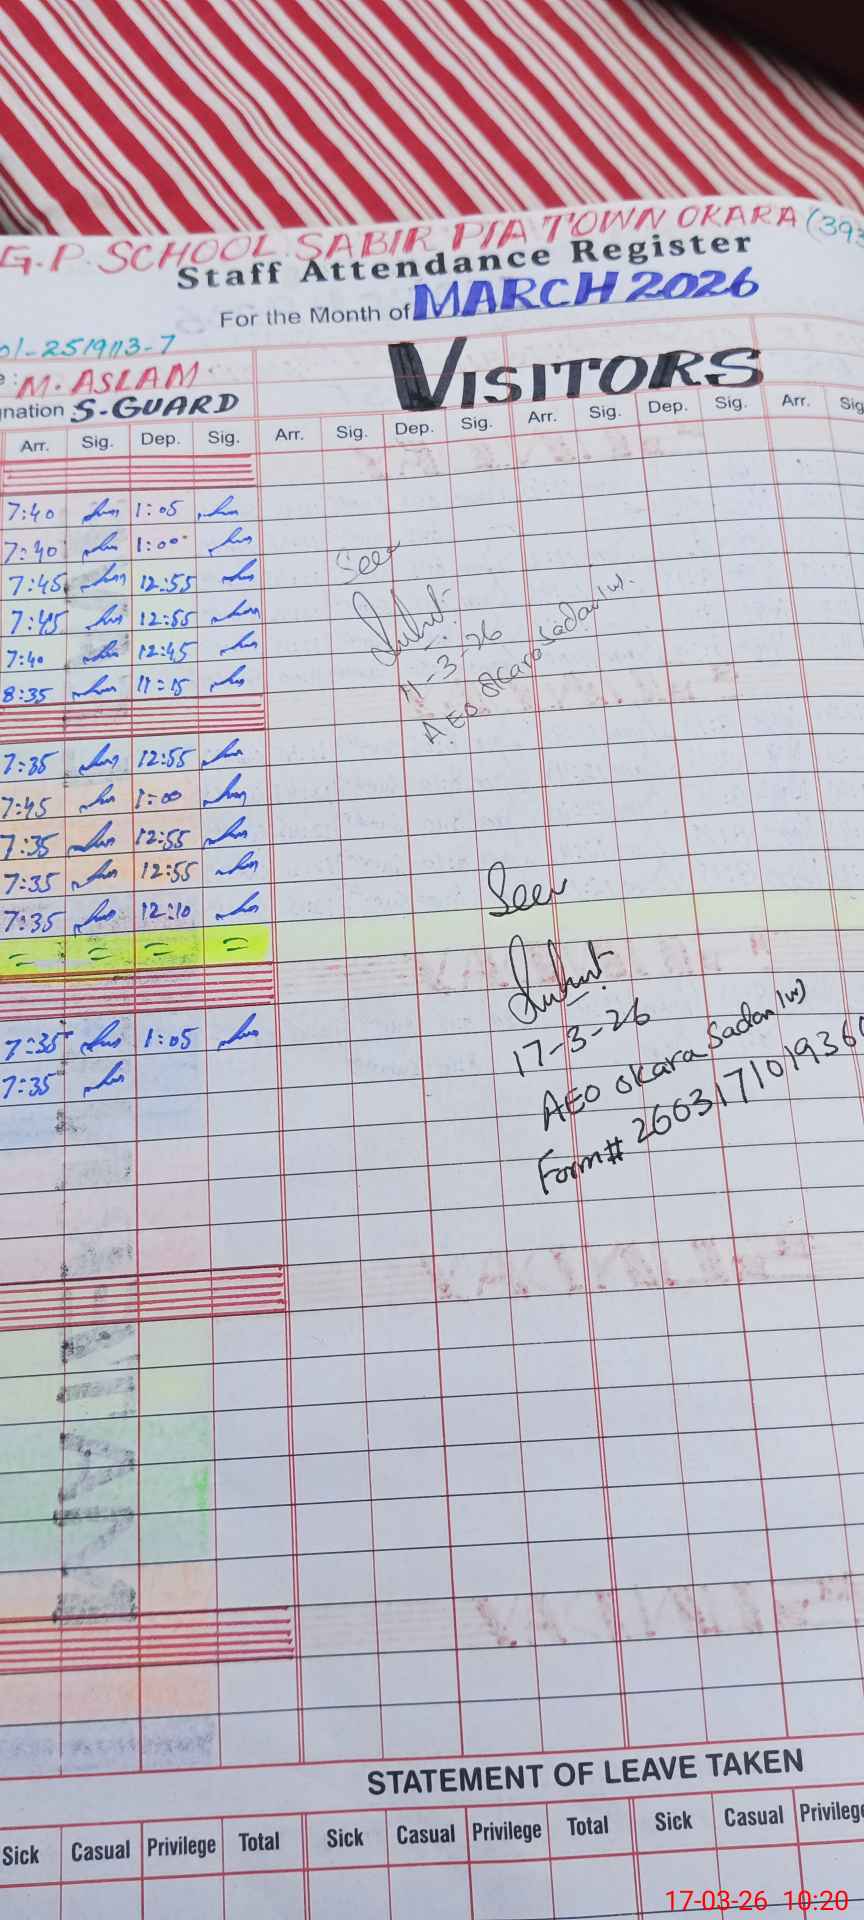 G.P. SCHOOL SABIR PIA TOWN OKARA (393
Staff Attendance Register
For the Month of MARCH 2026
01-2519113-7
M. ASLAM
VISITORS
nation S-GUARD
Arr. Sig. Dep. Sig. Arr. Sig. Dep. Sig. Arr. Sig. Dep. Sig. Arr. Sig
7:40 1:05
7:40 1:00
7:45 12:55
7:45 12:55
7:40 12:45
8:35 11:15
Seen
11-3-26
AEO Okara Sadar (w).
7:35 12:55
7:45 1:00
7:35 12:55
7:35 12:55
7:35 12:10
= = = =
7:35 1:05
7:35
Seen
17-3-26
AEO Okara Sadar (w)
Form# 2603171019360
STATEMENT OF LEAVE TAKEN
Sick Casual Privilege Total Sick Casual Privilege Total Sick Casual Privileg
17-03-26 10:20